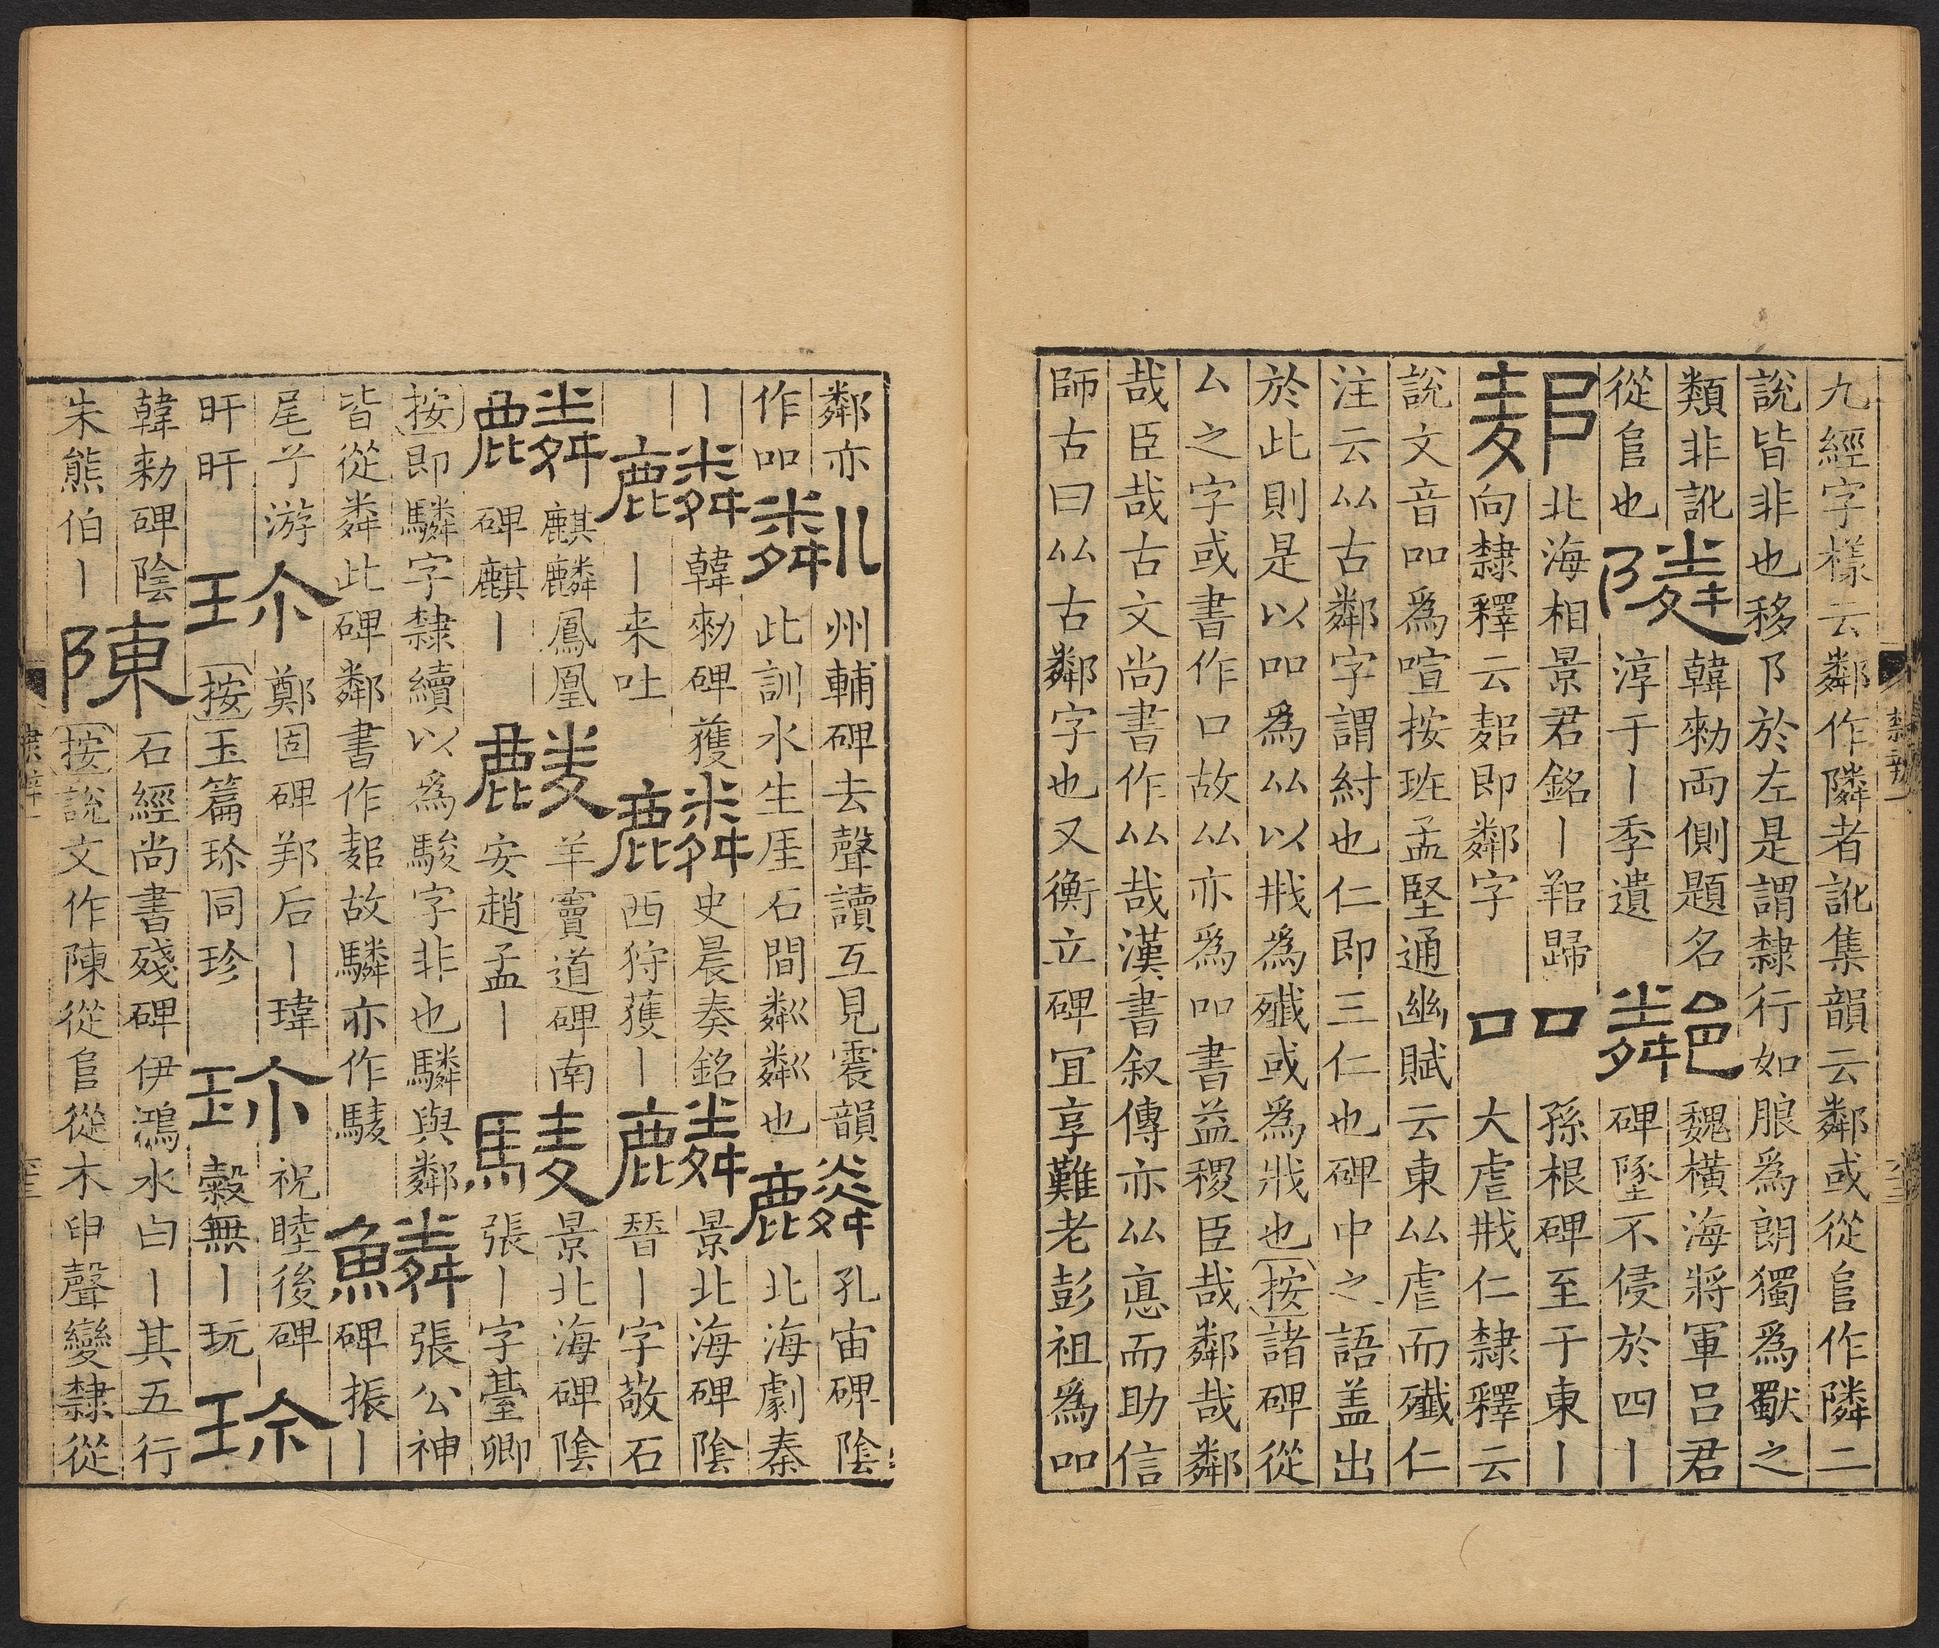 九經字樣云鄰作隣者訛集韻云鄰或從𨸏作隣二
說皆非也移卩於左是謂隸行如朖為朗獨為獸之
類非訛
從𨸏也
隣
韓勑両側題名
淳于丨季遺
魏橫海將軍呂君
碑墬不侵於四丨
北海相景君銘丨歸
向隸釋云即鄰字
吅
孫根碑至于東丨
大虐戕仁隸釋云
說文音吅爲喧按班孟堅通幽賦云東厸虐而殲仁
注云厸古鄰字謂紂也仁即三仁也碑中之語盖出
於此則是以吅爲厸以戕爲殲或爲戕也按諸碑從
厶之字或書作口故厸亦爲吅書益稷臣哉鄰哉鄰
哉臣哉古文尚書作厸哉漢書叙傳亦厸悳而助信
師古曰厸古鄰字也又衡立碑宜享難老彭祖爲吅
鄰亦
作吅
粼
州輔碑去聲讀互見震韻
此訓水生厓石間粼粼也
麟
孔宙碑陰
北海劇秦
丨
麟
韓勑碑獲
丨来吐
麟
史晨奏銘
西狩獲丨
麟
景北海碑陰
晉丨字敬石
麟
麒麟鳳凰
碑麒丨
麟
羊竇道碑南
安趙孟丨
驎
景北海碑陰
張丨字臺卿
按即驎字隸續以爲駿字非也驎與鄰
皆從粦此碑鄰書作故驎亦作
鱗
張公神
碑振丨
尾兮游
盰盰
珎
鄭固碑后丨瑋
按玉篇珎同珍
珎
祝睦後碑
榖無丨玩
珎
韓勑碑陰
朱熊伯丨
陳
石經尚書殘碑伊鴻水曰丨其五行
按說文作陳從𨸏從木申聲變隸從